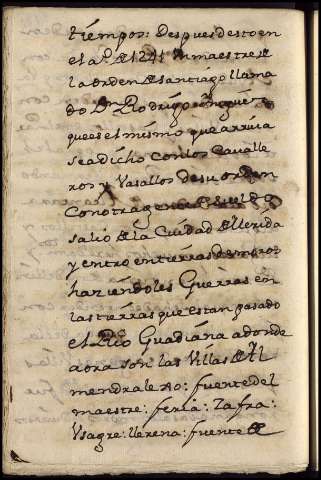 tiempos: Despues desto en
el año de 1241 Un maestre de
la orden de Santiago llama
do Don Rodrigo
que es el mismo que arriva
se a dicho con los Cavalle
ros y Vasallos de su orden
Con otra gente de sueldo
salio de la Ciudad de Merida
y entro en tierras de moros
haziendoles Guerras en
las tierras que estan pasado
el Rio Guadiana adonde
aora son las Villas de Al
mendralexo: fuente del
maestre: feria: Zafra:
Usagre: llerena: fuente de